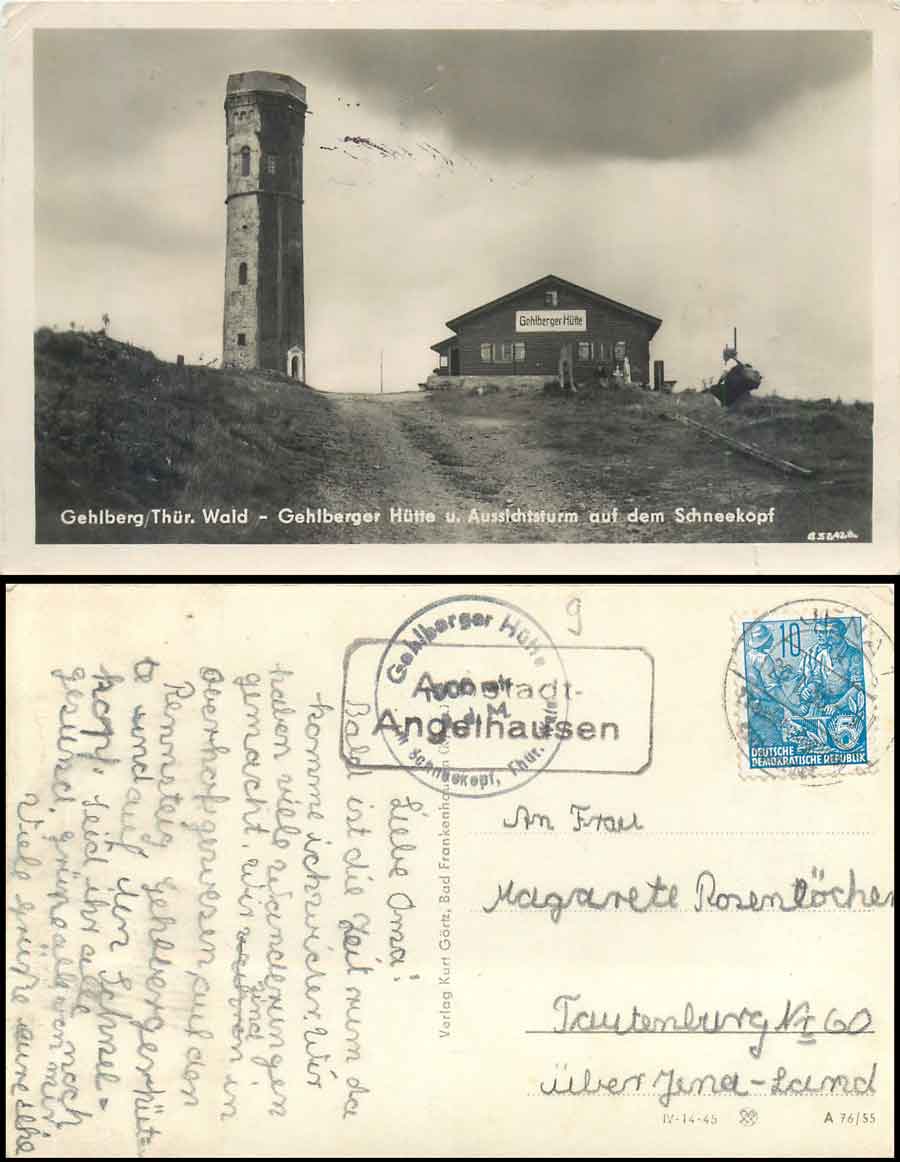 Gehlberger Hütte
Gehlberg/Thür. Wald - Gehlberger Hütte u. Aussichtsturm auf dem Schneekopf
9
Gehlberger Hütte
Schneekopf, Thür.
Arnstadt-
Angelhausen
10
5
DEUTSCHE
DEMOKRATISCHE REPUBLIK
Liebe Oma!
Bald ist die Zeit rum da
komme ich wieder. Wir
haben viele Wanderungen
gemacht. Wir sind in
Oberhof gewesen, auf den
Rennsteig, Gehlbergerhüt-
te und auf den Schnee=
kopf. Seid ihr alle noch
gesund, grüße alle von mir
Viele grüße eure
Verlag Kurt Görtz, Bad Frankenhausen
An Frau
Magarete Rosenlöcher
Tautenburg Nr 60
über Jena-Land
IV-14-45
A 76/55